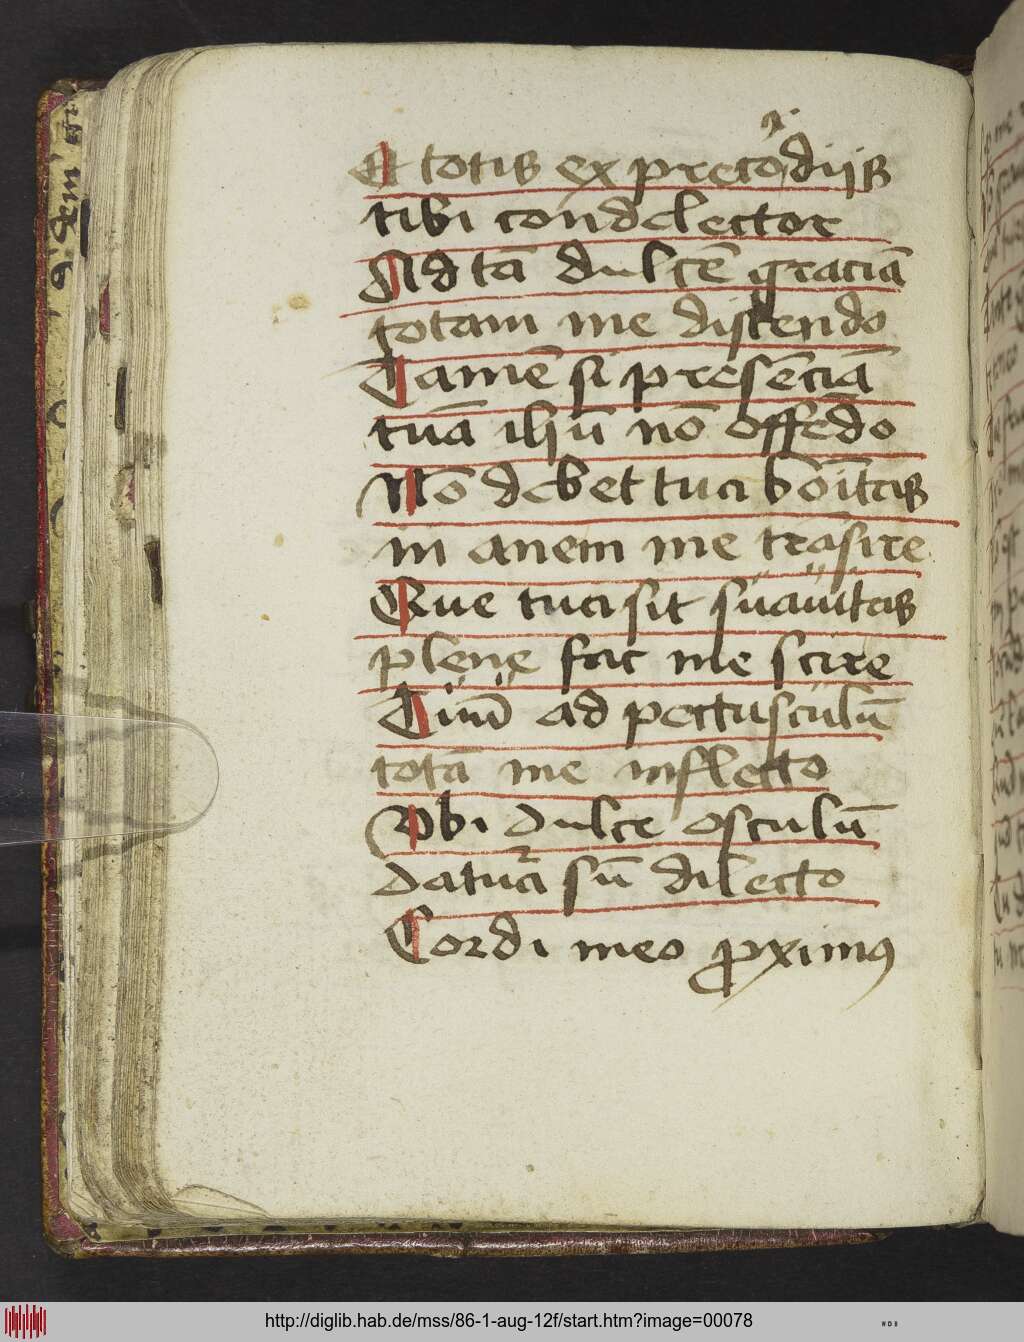 Et totis ex precordiis
tibi condelector
Ad tā dulcē graciā
totam me distendo
Tamē si presēciā
tuā ihū nō offēdo
Nō debet tua bōitas
in anem me trāsire
Que tua sit suauitas
plene fac me scire
Cum ad pectusculū
totā me inflecto
Vbi dulce osculū
datura sū dilecto
Cordi meo ꝓximus
http://diglib.hab.de/mss/86-1-aug-12f/start.htm?image=00078